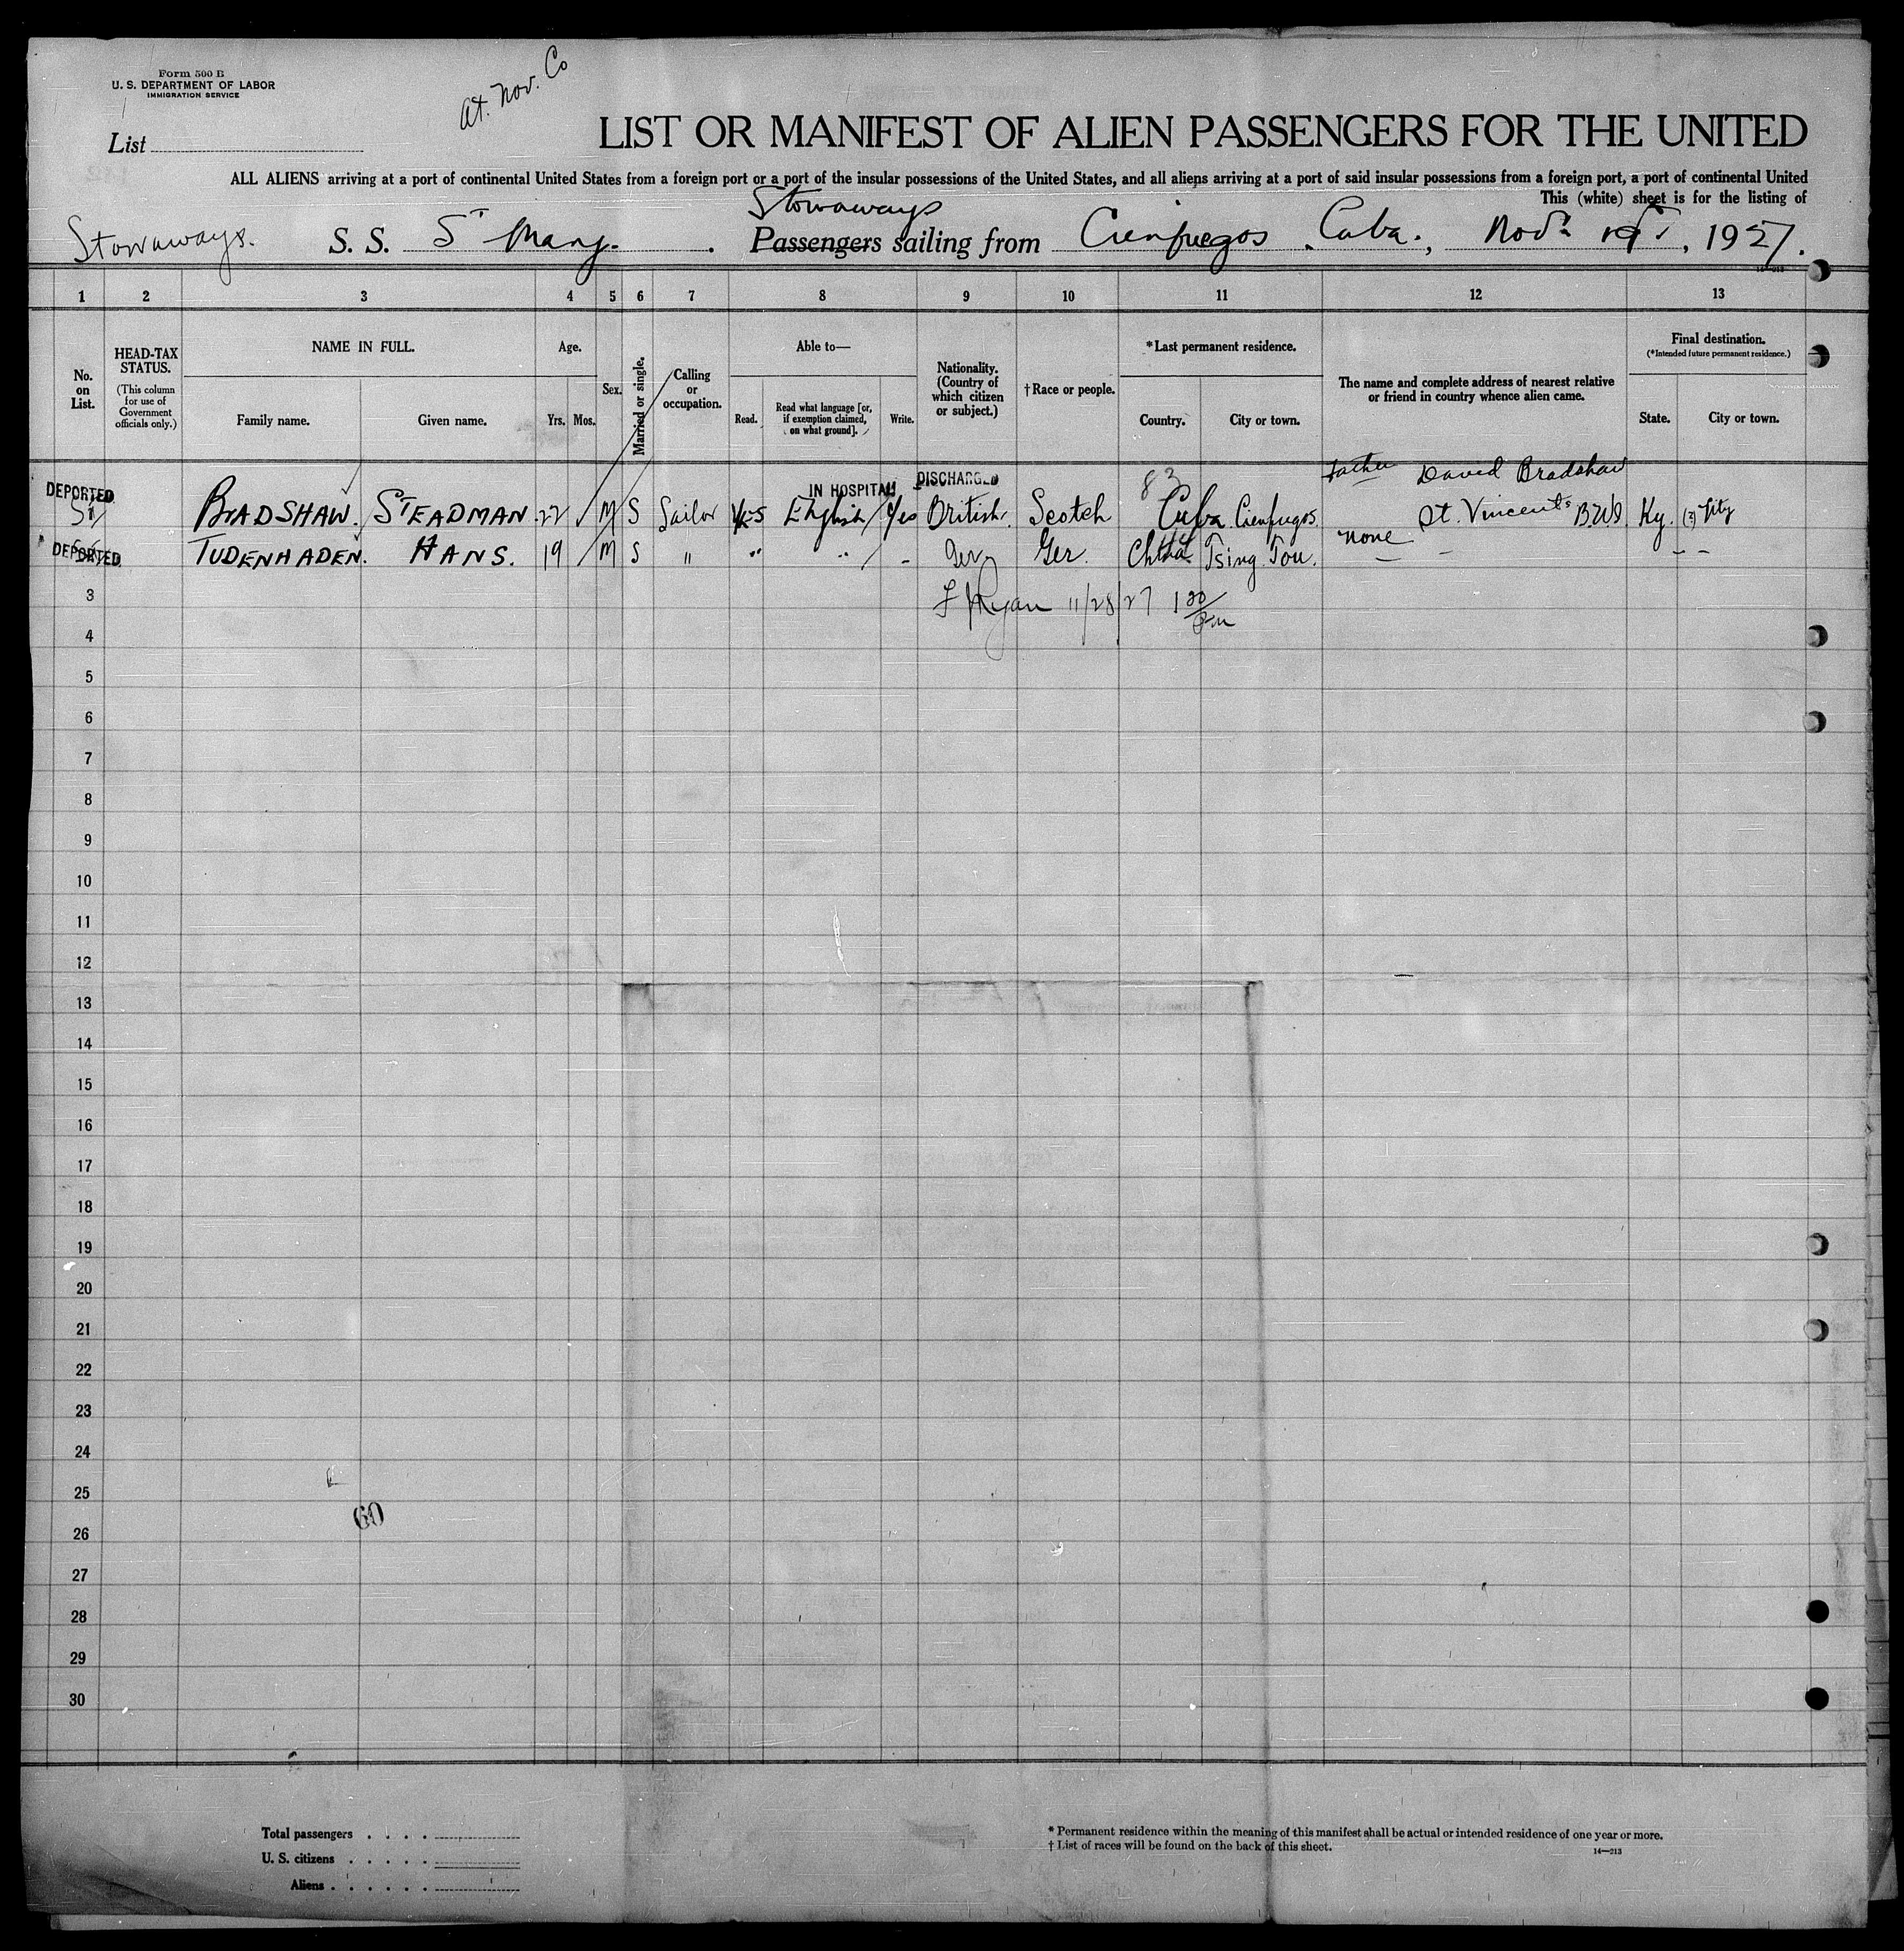 Form 500 B
U. S. DEPARTMENT OF LABOR
IMMIGRATION SERVICE
At. Nav. Co
List
LIST OR MANIFEST OF ALIEN PASSENGERS FOR THE UNITED
ALL ALIENS arriving at a port of continental United States from a foreign port or a port of the insular possessions of the United States, and all aliens arriving at a port of said insular possessions from a foreign port, a port of continental United
This (white) sheet is for the listing of
Stowaways
Stowaways. S. S. St Mary. Passengers sailing from Cienfuegos, Cuba., 1927.
14-213
1 2 3 4 5 6 7 8 9 10 11 12 13
No. on List.
HEAD-TAX STATUS.
(This column for use of Government officials only.)
NAME IN FULL.
Family name. Given name.
Age.
Yrs. Mos.
Sex.
Married or single.
Calling or occupation.
Able to—
Read. Read what language [or, if exemption claimed, on what ground]. Write.
Nationality. (Country of which citizen or subject.)
†Race or people.
*Last permanent residence.
Country. City or town.
The name and complete address of nearest relative or friend in country whence alien came.
Final destination.
(*Intended future permanent residence.)
State. City or town.
DEPORTED IN HOSPITAL DISCHARGED 83 father David Bradshaw
BRADSHAW. STEADMAN. 22 M S Sailor Yes English Yes British. Scotch Cuba Cienfuegos. St. Vincents BWI Ky.
DEPORTED TUDENHADEN. HANS. 19 M S " " " - Ger Ger. China Tsing Tou. none — — — —
3 F Ryan 11/28/27 1 30/Pm
4
5
6
7
8
9
10
11
12
13
14
15
16
17
18
19
20
21
22
23
24
25
60
26
27
28
29
30
Total passengers
U. S. citizens
Aliens
* Permanent residence within the meaning of this manifest shall be actual or intended residence of one year or more.
† List of races will be found on the back of this sheet.
14—213